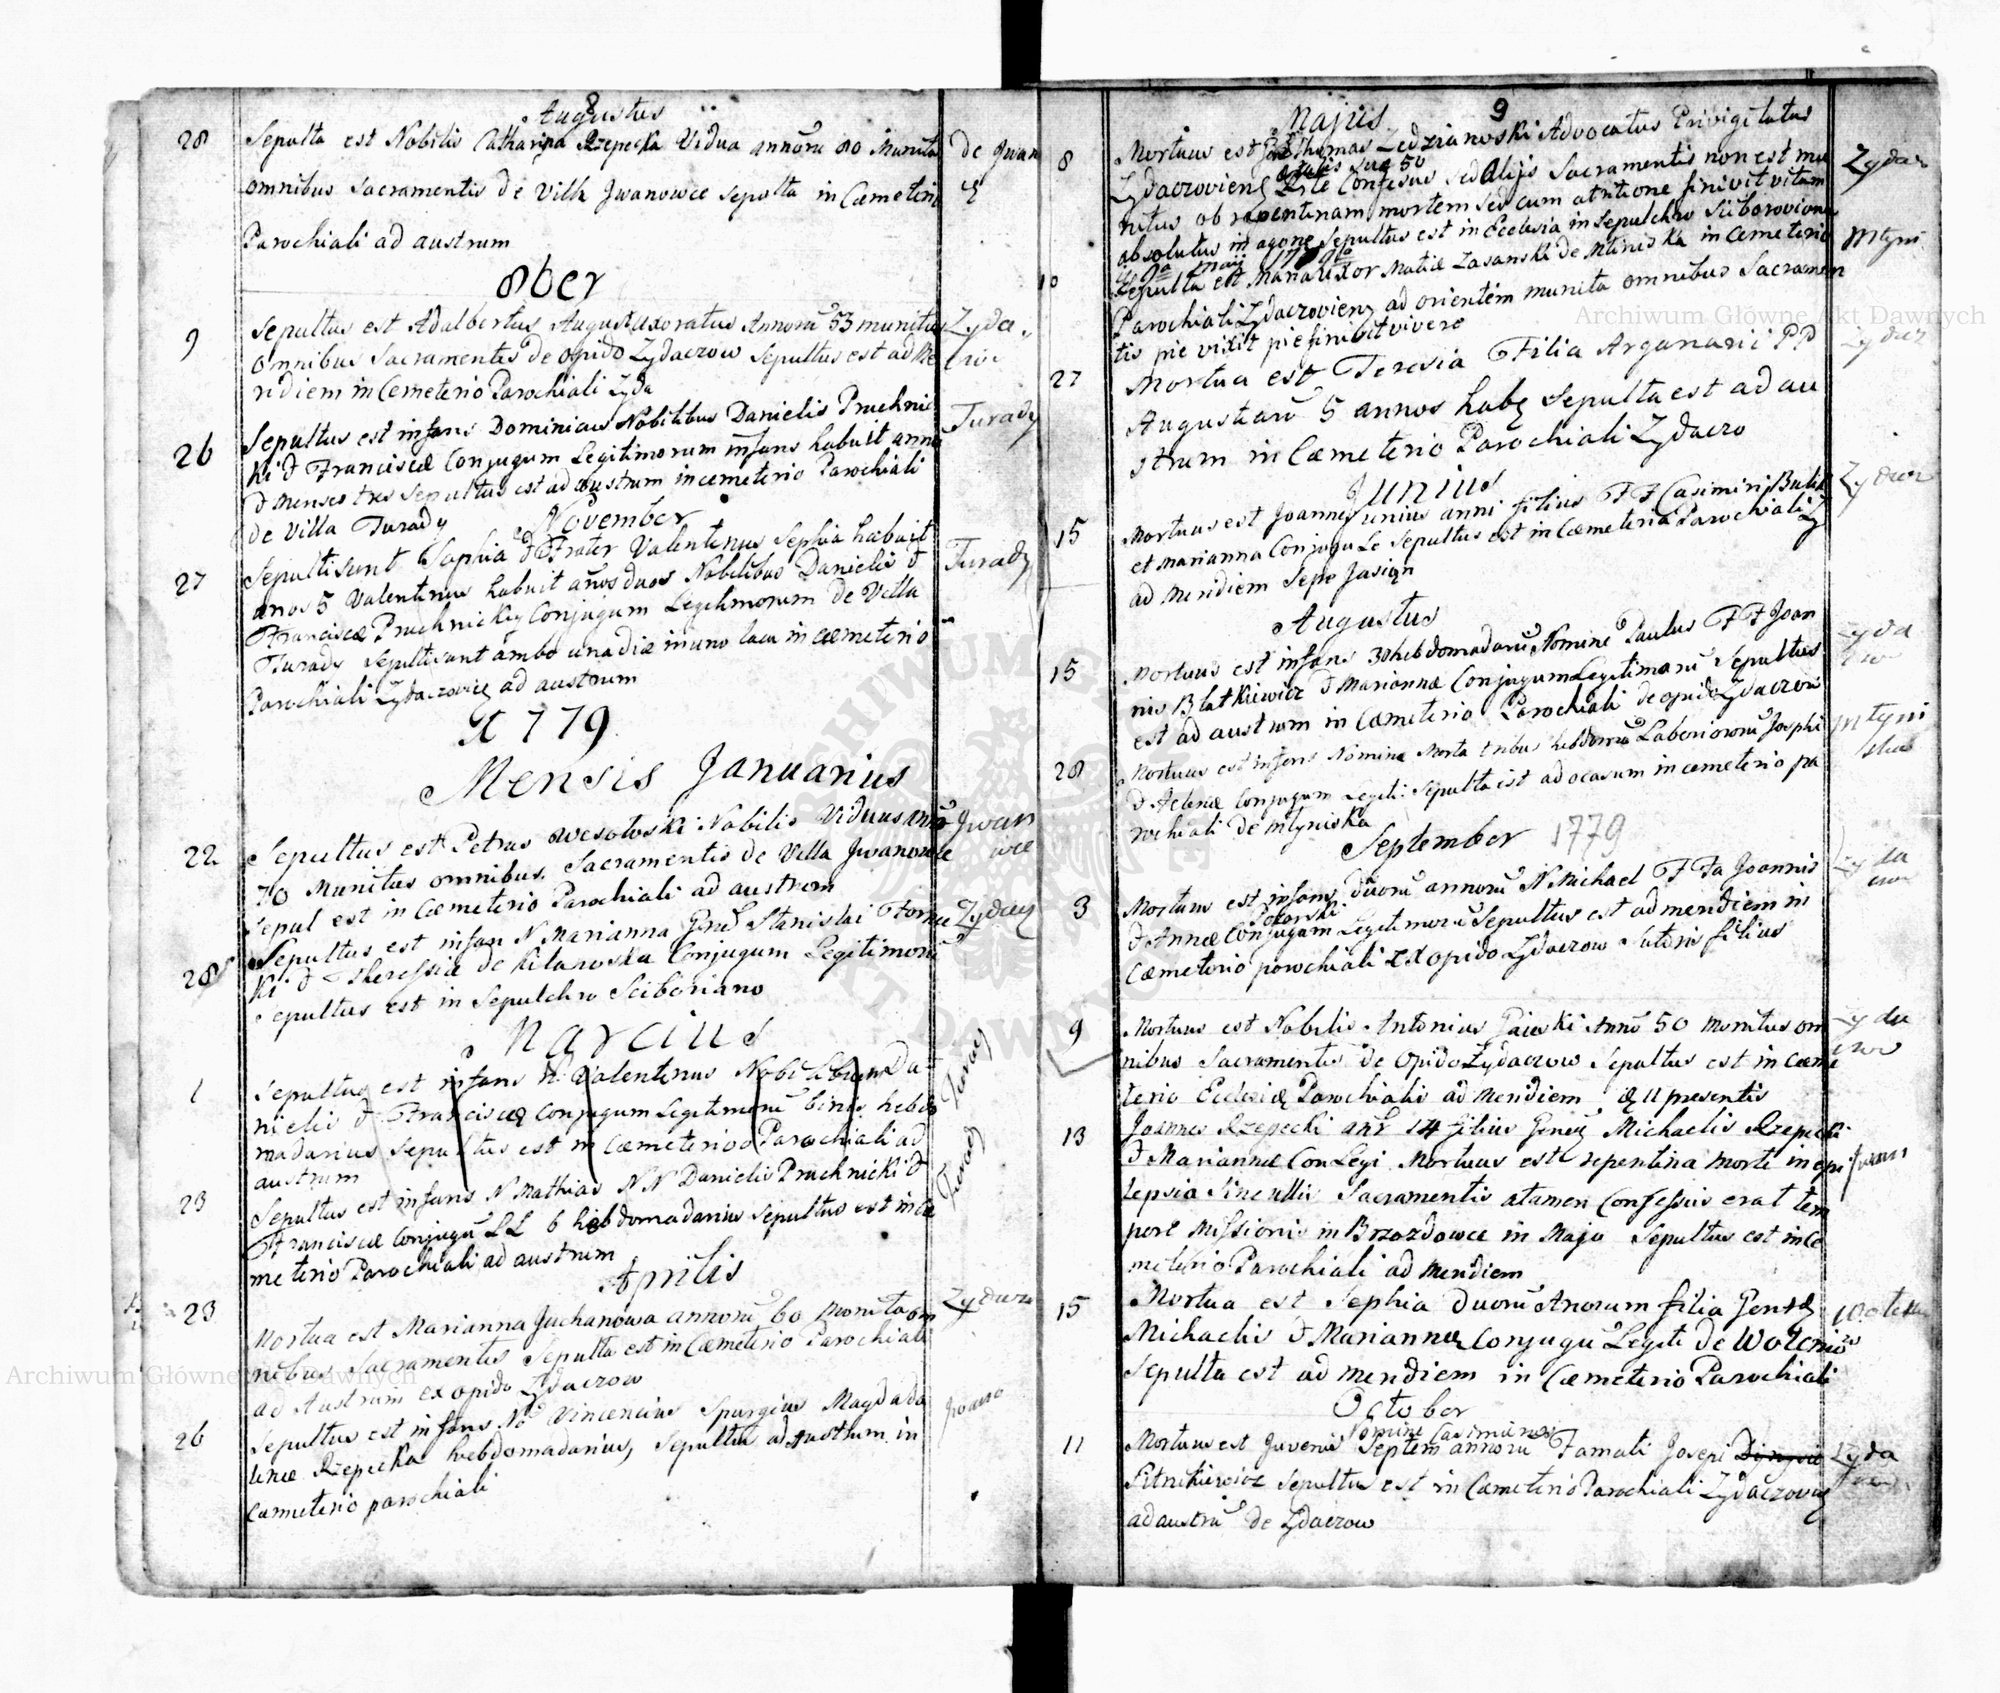 8
Augustus
28 Sepulta est Nobilis Catharina Rzepecka Vidua annorũ 80 Munita de Jwan
omnibus Sacramentis de Villa Jwanowce sepulta in Cæmeterio
Parochiali ad austrum
8ber
9 Sepultus est Adalbertus Augustt uxoratus Annorũ 53 munitus Zyda
omnibus Sacramentis de opido Zydaczow Sepultus est ad Me
ridiem in Cemeterio Parochiali Zyda
26 Sepultus est infans Dominicus Nobilibus Danielis Pruchnic Turady
ki & Franciscæ Conjugum Legitimorum infans habuit annũ
& Menses tres Sepultus est ad austrum in cemeterio Parochiali
de Villa Turady
November
27 Sepulti sunt Sophia & Frater Valentinus Sophia habuit Turady
anos 5 Valentinus habuit años duos Nobilibus Danielis &
Franciscæ Pruchnickich Conjugum Legitimorum de Villa
Turady Sepulti sunt ambo una die in uno loco in cæmeterio
Parochiali Zydaczovien ad austrum
A 1779
Mensis Januarius
22 Sepultus est Petrus Wesołoski Nobilis Viduus annorũ Jwan
70 Munitus omnibus Sacramentis de Villa Jwanowce wce
Sepul est in Cæmeterio Parochiali ad austrum
28 Sepultus est infan N Marianna Gne͠ Stanislai Torne Zydacz
ki & Theressiæ de Kilanoska Conjugum Legitimorũ
Sepultus est in Sepulchro Sciboriano
Marcius
1 Sepultus est infans N Valentinus Nobilibus Da Turad
nielis & Franciscæ Conjugum Legitimorũ binis hebdo
madarius Sepultus est in Cæmeterio Parochiali ad
austrum
23 Sepultus est infans N Mathias NN Danielis Pruchnicki & Turady
Franciscæ Conjugũ LL 6 hebdomadarius Sepultus est in Cæ
meterio Parochiali ad austrum
Aprilis
23 Mortua est Marianna Juchanowa annorũ 60 Munita om Zydacz
nibus Sacramentis Sepulta est in Cæmeterio Parochiali
ad Austrum ex opido Zydaczow
26 Sepultus est infans No Vincencius Spurgius Magdada Jwano
lenæ Rzepecka hebdomadarius, sepultus ad austrum in
Cæmeterio parochiali
9
Majus
8 Mortuus est Thomas Ledzianoski Advocatus Privigilatus Zydacz
ætatis suæ 50
Zydaczoviens Rite Confesus sed Alijs Sacramentis non est mu
nitus ob repentinam mortem sed cum atritione finivit vitam
absolutus in agone Sepultus est in Ecclesia in Sepulchro Sciborovianu Młyni
10 Sepulta est Marian Uxor Matiæ Zasanski de Młiniska in Cemeterio
Parochiali Zydaczovien ad orientem munita omnibus Sacramen
tis pie vixit pie finivit vivere
27 Mortua est Teresia Filia Arganarii PP Zydacz
Augustiarũ 5 annos habens Sepulta est ad au
strum in Cæmeterio Parochiali Zydaczo
Junius
15 Mortuus est Joannes unius anni filius FF Casimiri Zydacz
et Marianna Conjugu Le Sepultus est in Cæmeteria Parochiali Z
ad Meridiem
Augustus
15 Mortuus est infans 3 hebdomadarũ Nomine Paulus FF Joan Zyda
nis Blatkiewicz & Mariannæ Conjugum Legitimorũ Sepultus
est ad austrum in Cæmeterio Parochiali de opido Zydaczow
28 Mortuus est infans Nomine tribus hebdomad Laboriosorũ Josephi Młyni
& Helenæ Conjugum Legiti: Sepulta est ad ocasum in cemeterio pa ska
rochiali de Młyniska
September 1779
3 Mortuus est infans duorũ annorũ N Michael FFa Joannis Zyda
& Annæ Conjugum Legitimorũ Sepultus est ad meridiem in czow
Cæmeterio parochiali ex opido Zydaczow Sutoris filius
9 Mortuus est Nobilis Antonius Gaieski Annõ 50 Monitus om Zyda
nibus Sacramentis de Opido Zydaczow Sepultus est in Cæme czow
terio Eclesiæ Parochialis ad Meridiem 11 presentis
13 Joannes Rzepecki 14 filius Michaelis Rzepecki
& Mariannæ Con Legi Mortuus est repentina morte in epi Jwan
lepsia Sine ullis Sacramentis atamen Confessus erat tem
pore Missionis in Brzozdowce in Majo Sepultus est in Ce
meterio Parochiali ad Meridiem
15 Mortua est Sophia Duorũ Anorum filia
Michaelis & Mariannæ Conjugũ Legiti de Wolcniow
Sepulta est ad meridiem in Cæmeterio Parochiali
October
Nomine Casimirus
11 Mortuus est Juvenis Septem annorũ Famati Josepi Zyda
Pitnikiewicz Sepultus est in Cæmeterio Parochiali Zydaczovien
ad austrũ de Zydaczow
Archiwum Główne Akt Dawnych
Archiwum Główne Akt Dawnych